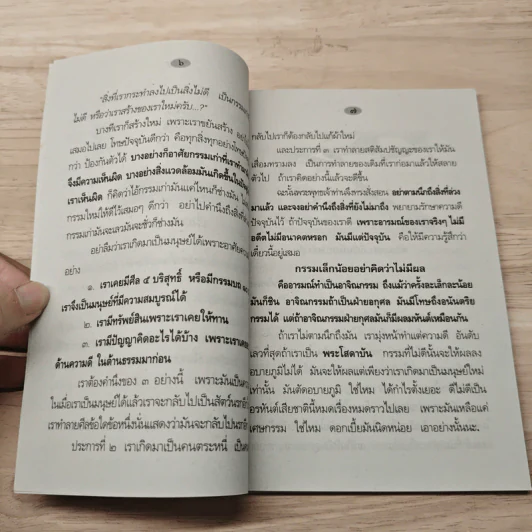 ๖
"สิ่งที่เรากระทำลงไปเป็นสิ่งไม่ดี เป็นการ
ไม่ดี หรือว่าเราสร้างของเราใหม่ครับ...?"
บางทีเราก็สร้างใหม่ เพราะเราขยันสร้าง อยู่
เสมอไปเลย โทษปัจจุบันดีกว่า คือทุกสิ่งทุกอย่าง
กว่า ป้องกันตัวได้ บางอย่างก็อาศัยกรรมเก่าที่เรา
จึงมีความเห็นผิด บางอย่าง สิ่งแวดล้อมมันเกิดขึ้น
เราเห็นผิด ก็คิดว่าไอ้กรรมเก่ามันแค่ไหนก็ช่างมัน
กรรมใหม่ให้ดีไว้เสมอๆ ดีกว่า อย่าไปคำนึงถึงสิ่ง
กรรมเก่ามันจะเลวมันจะชั่วก็ช่างมัน
อย่าลืมว่าเราเกิดมาเป็นมนุษย์ได้เพราะอาศัย
อย่าง
๑. เราเคยมีศีล ๕ บริสุทธิ์ หรือมีกรรมบถ
เราจึงเป็นมนุษย์ที่มีความสมบูรณ์ได้
๒. เรามีทรัพย์สินเพราะเราเคยให้ทาน
๓. เรามีปัญญาคิดอะไรได้บ้าง เพราะเรา
ด้านความดี ในด้านธรรมมาก่อน
เราต้องคำนึงของ ๓ อย่างนี้ เพราะมัน
ในเมื่อเราเป็นมนุษย์ได้แล้วเราจะกลับไปเป็นสัตว์
เราทำลายศีลข้อใดข้อหนึ่งนั่นแสดงว่ามันจะกลับไป
ประการที่ ๒ เราเกิดมาเป็นคนตระหนี่
๗
กลับไปเราก็ต้องกลับไปแก้ผ้าใหม่
และประการที่ ๓ เราทำลายสติสัมปชัญญะของเราให้มัน
เสื่อมทรามลง เป็นการทำลายของเดิมที่เราก่อมาแล้วให้สลาย
ตัวไป ถ้าเราคิดอย่างนี้แล้วจะดีขึ้น
ฉะนั้นพระพุทธเจ้าท่านจึงทรงสั่งสอน อย่าตามนึกถึงสิ่งที่ล่วง
มาแล้ว และจงอย่าคำนึงถึงสิ่งที่ยังไม่มาถึง พยายามรักษาความดี
ปัจจุบันไว้ ถ้าปัจจุบันของเราดี เพราะอารมณ์ของเราจริงๆ ไม่มี
อดีตไม่มีอนาคตหรอก มันมีแต่ปัจจุบัน คือให้มีความรู้สึกว่า
เดี๋ยวนี้อยู่เสมอ
กรรมเล็กน้อยอย่าคิดว่าไม่มีผล
คืออารมณ์ทำเป็นอาจิณ ถึงแม้ว่าครั้งละเล็กละน้อย
มันก็ชิน อาจิณกรรมถ้าเป็นฝ่ายอกุศล มันมีโทษถึงอนันตริย
กรรมได้ แต่ถ้าอาจิณกรรมฝ่ายกุศลมันก็มีผลมหันต์เหมือนกัน
ถ้าเราไม่ตามนึกถึงมัน เรามุ่งหน้าทำแต่ความดี อันดับ
เลวที่สุดถ้าเราเป็น พระโสดาบัน กรรมที่ไม่ดีนั้นจะให้ผลลง
อบายภูมิไม่ได้ มันจะให้ผลแต่เพียงว่าเราเกิดมาเป็นมนุษย์ใหม่
เท่านั้น มันตัดอบายภูมิ ใช่ไหม ได้กำไรตั้งเยอะ ดีไม่ดีเป็น
อรหันต์เสียชาตินี้หมดเรื่องหมดราวไปเลย เพราะมันเหลือแค่
เศษกรรม ใช่ไหม ดอกเบี้ยมันนิดหน่อย เอาอย่างนั้นนะ.